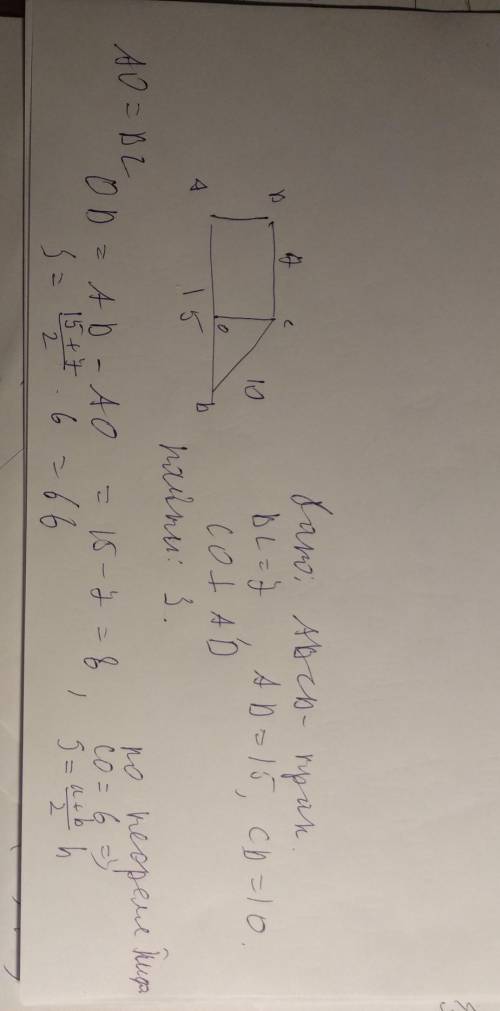 Дано: ABCD - трап.
BC = 7, AD = 15, CD = 10.
CO ⊥ AD
Найти: S.
B 7 C
10
A 15 O D
AO = BC
OD = AD - AO = 15 - 7 = 8, по теореме Пифа
CO = 6 =>
S = \frac{a+b}{2} h
S = \frac{15+7}{2} · 6 = 66